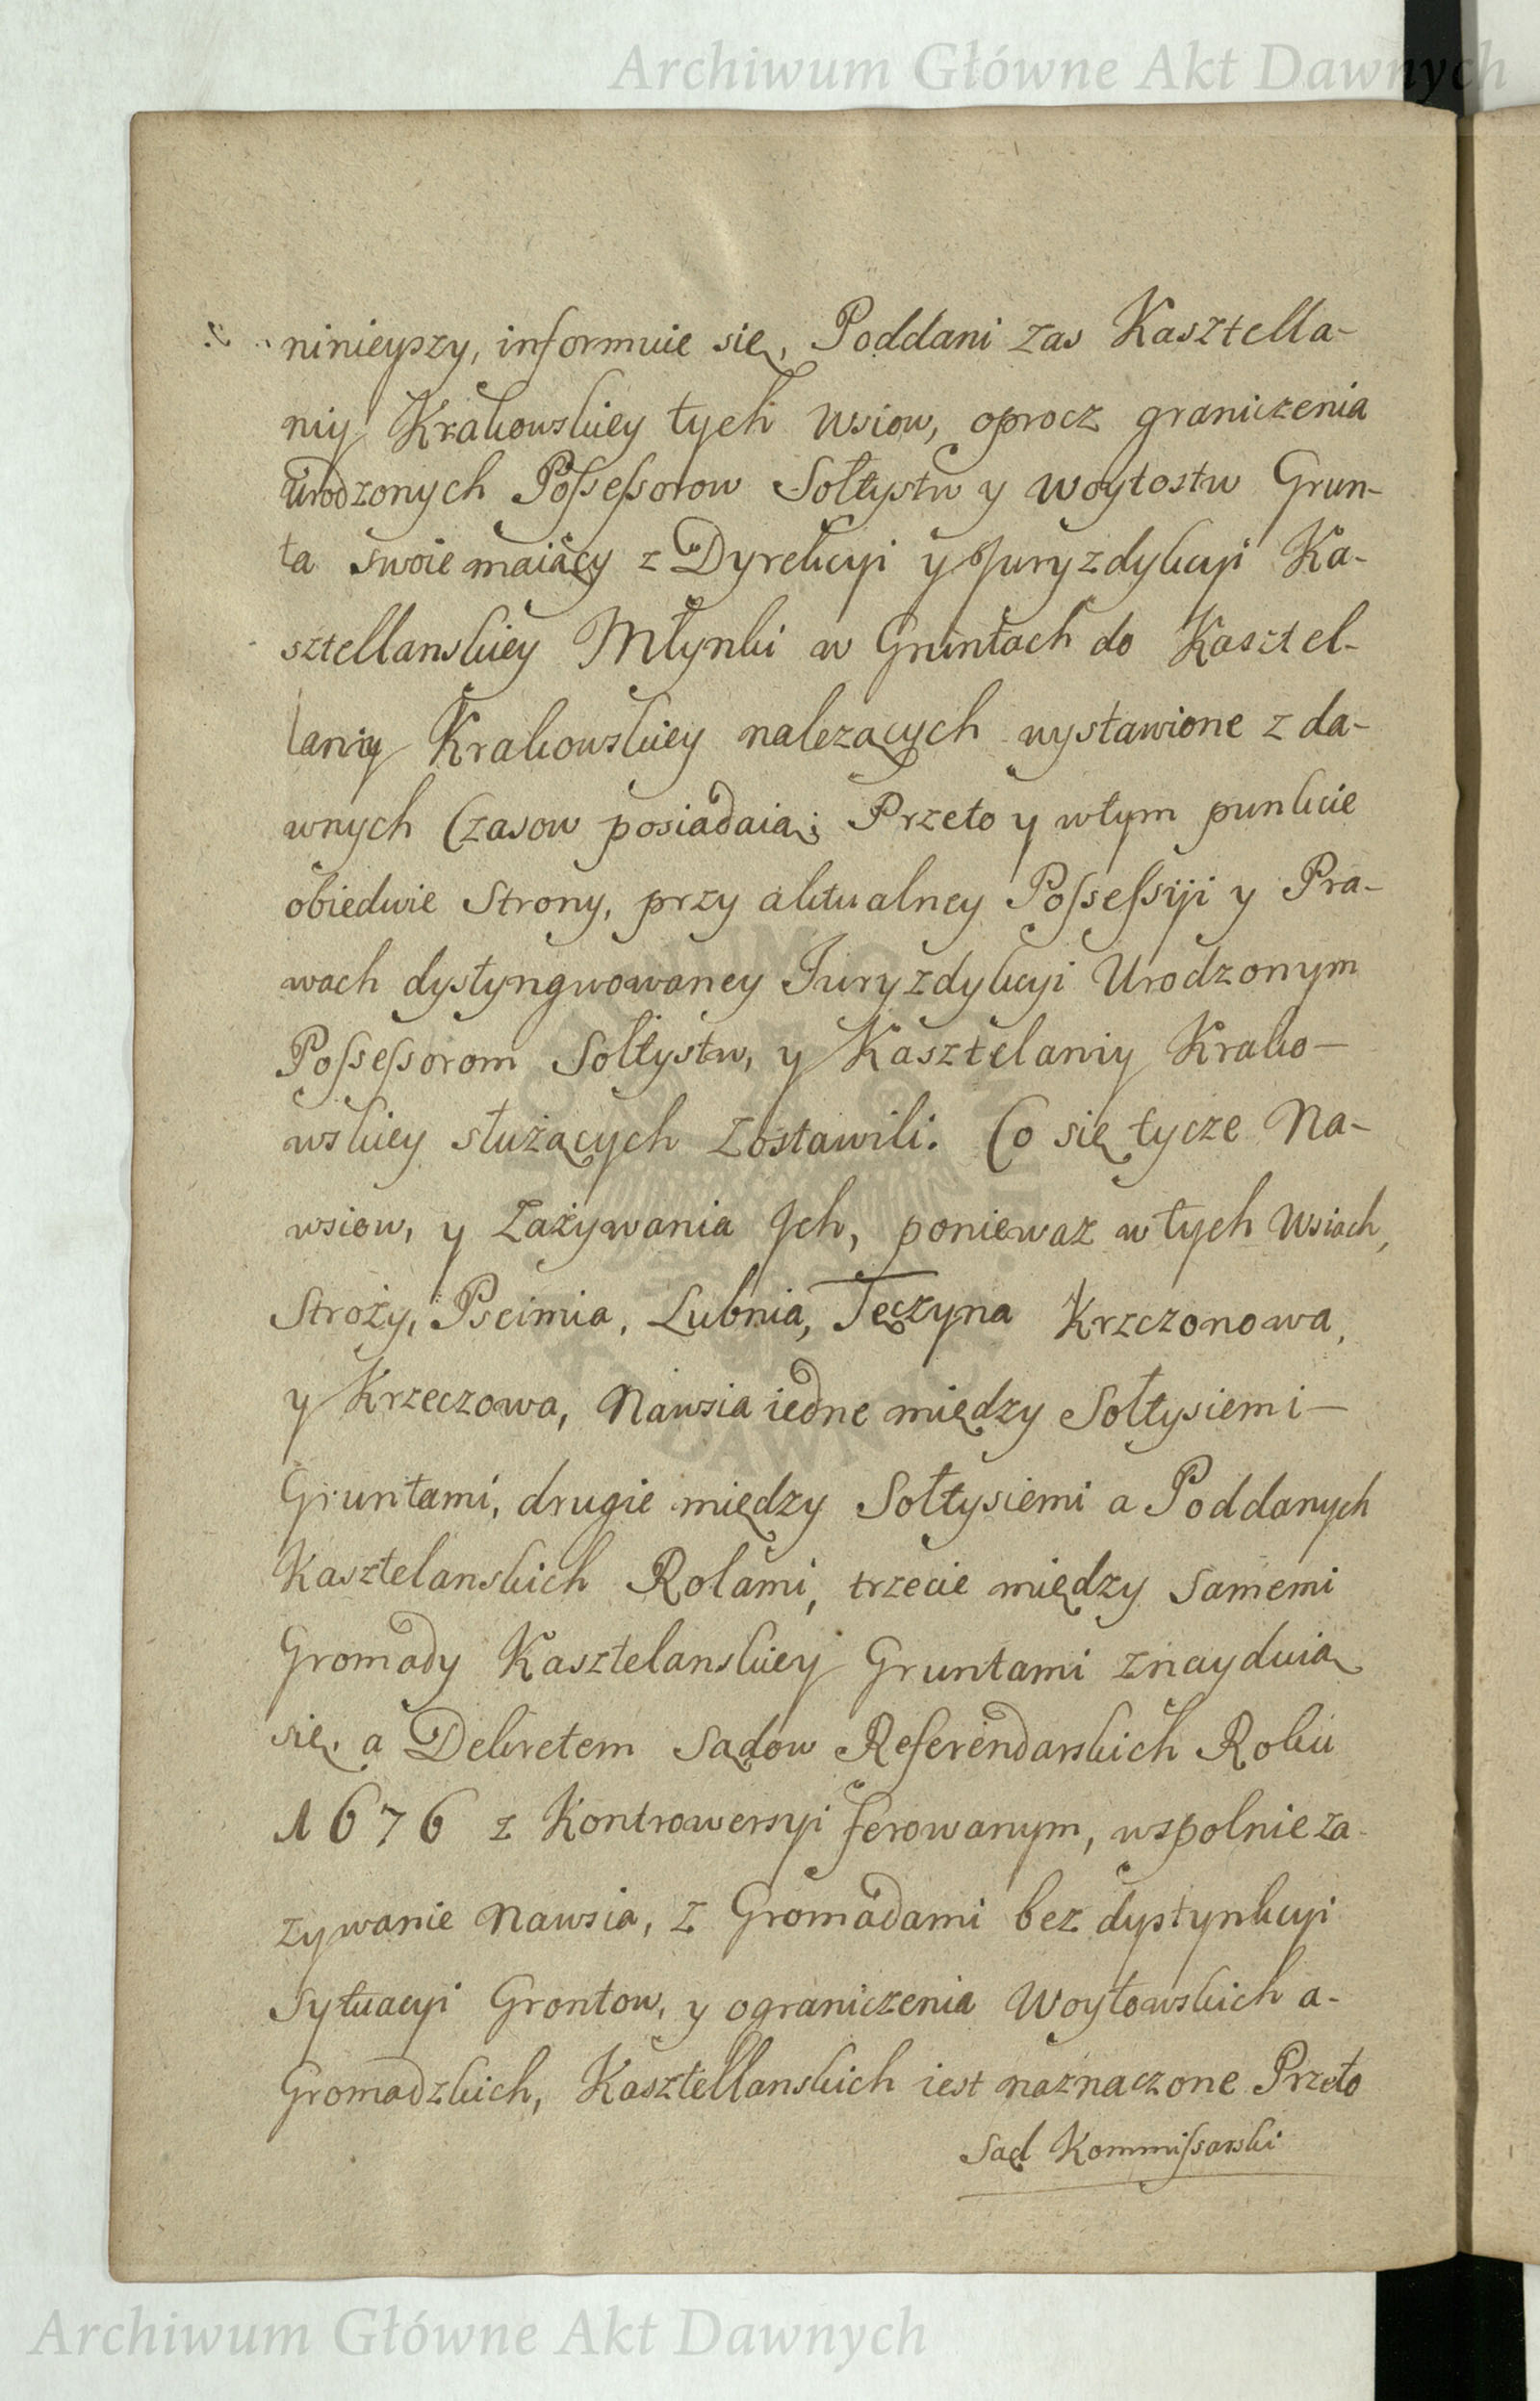 Archiwum Główne Akt Dawnych
ninieyszy, informuie się, Poddani zas Kasztella-
niy Krakowskiey tych Wsiow, oprocz graniczenia
Urodzonych Possessorow Sołtystw y Woytostw Grun-
ta swoie maiący z Dyrekcyi y Juryzdykcyi Ka-
sztellanskiey Młynki w Gruntach do Kasztel-
laniy Krakowskiey nalezących wystawione z da-
wnych Czasow posiadaią; Przeto y wtym punkcie
obiedwie Strony, przy aktualney Possessyi y Pra-
wach dystyngwowaney Juryzdykcyi Urodzonym
Possessorom Sołtystw, y Kasztelaniy Krako-
wskiey służących zostawili. Co się tycze Na-
wsiow, y Zażywania Jch, poniewaz w tych Wsiach,
Stroży, Pscimia, Lubnia, Tęczyna Krzczonowa,
y Krzeczowa, Nawsia iedne między Sołtysiemi-
Gruntami, drugie między Sołtysiemi a Poddanych
Kasztelanskich Rolami, trzecie między samemi
Gromady Kasztelanskiey Gruntami znayduią
się, a Dekretem Sądow Referendarskich Roku
1676 z Kontrowersyi ferowanym, wspolnie za-
zywanie Nawsia, z Gromadami bez dystynkcyi
Sytuacyi Grontow, y ograniczenia Woytowskich a-
Gromadzkich, Kasztellanskich iest naznaczone Przeto
Sąd Kommissarski
Archiwum Główne Akt Dawnych